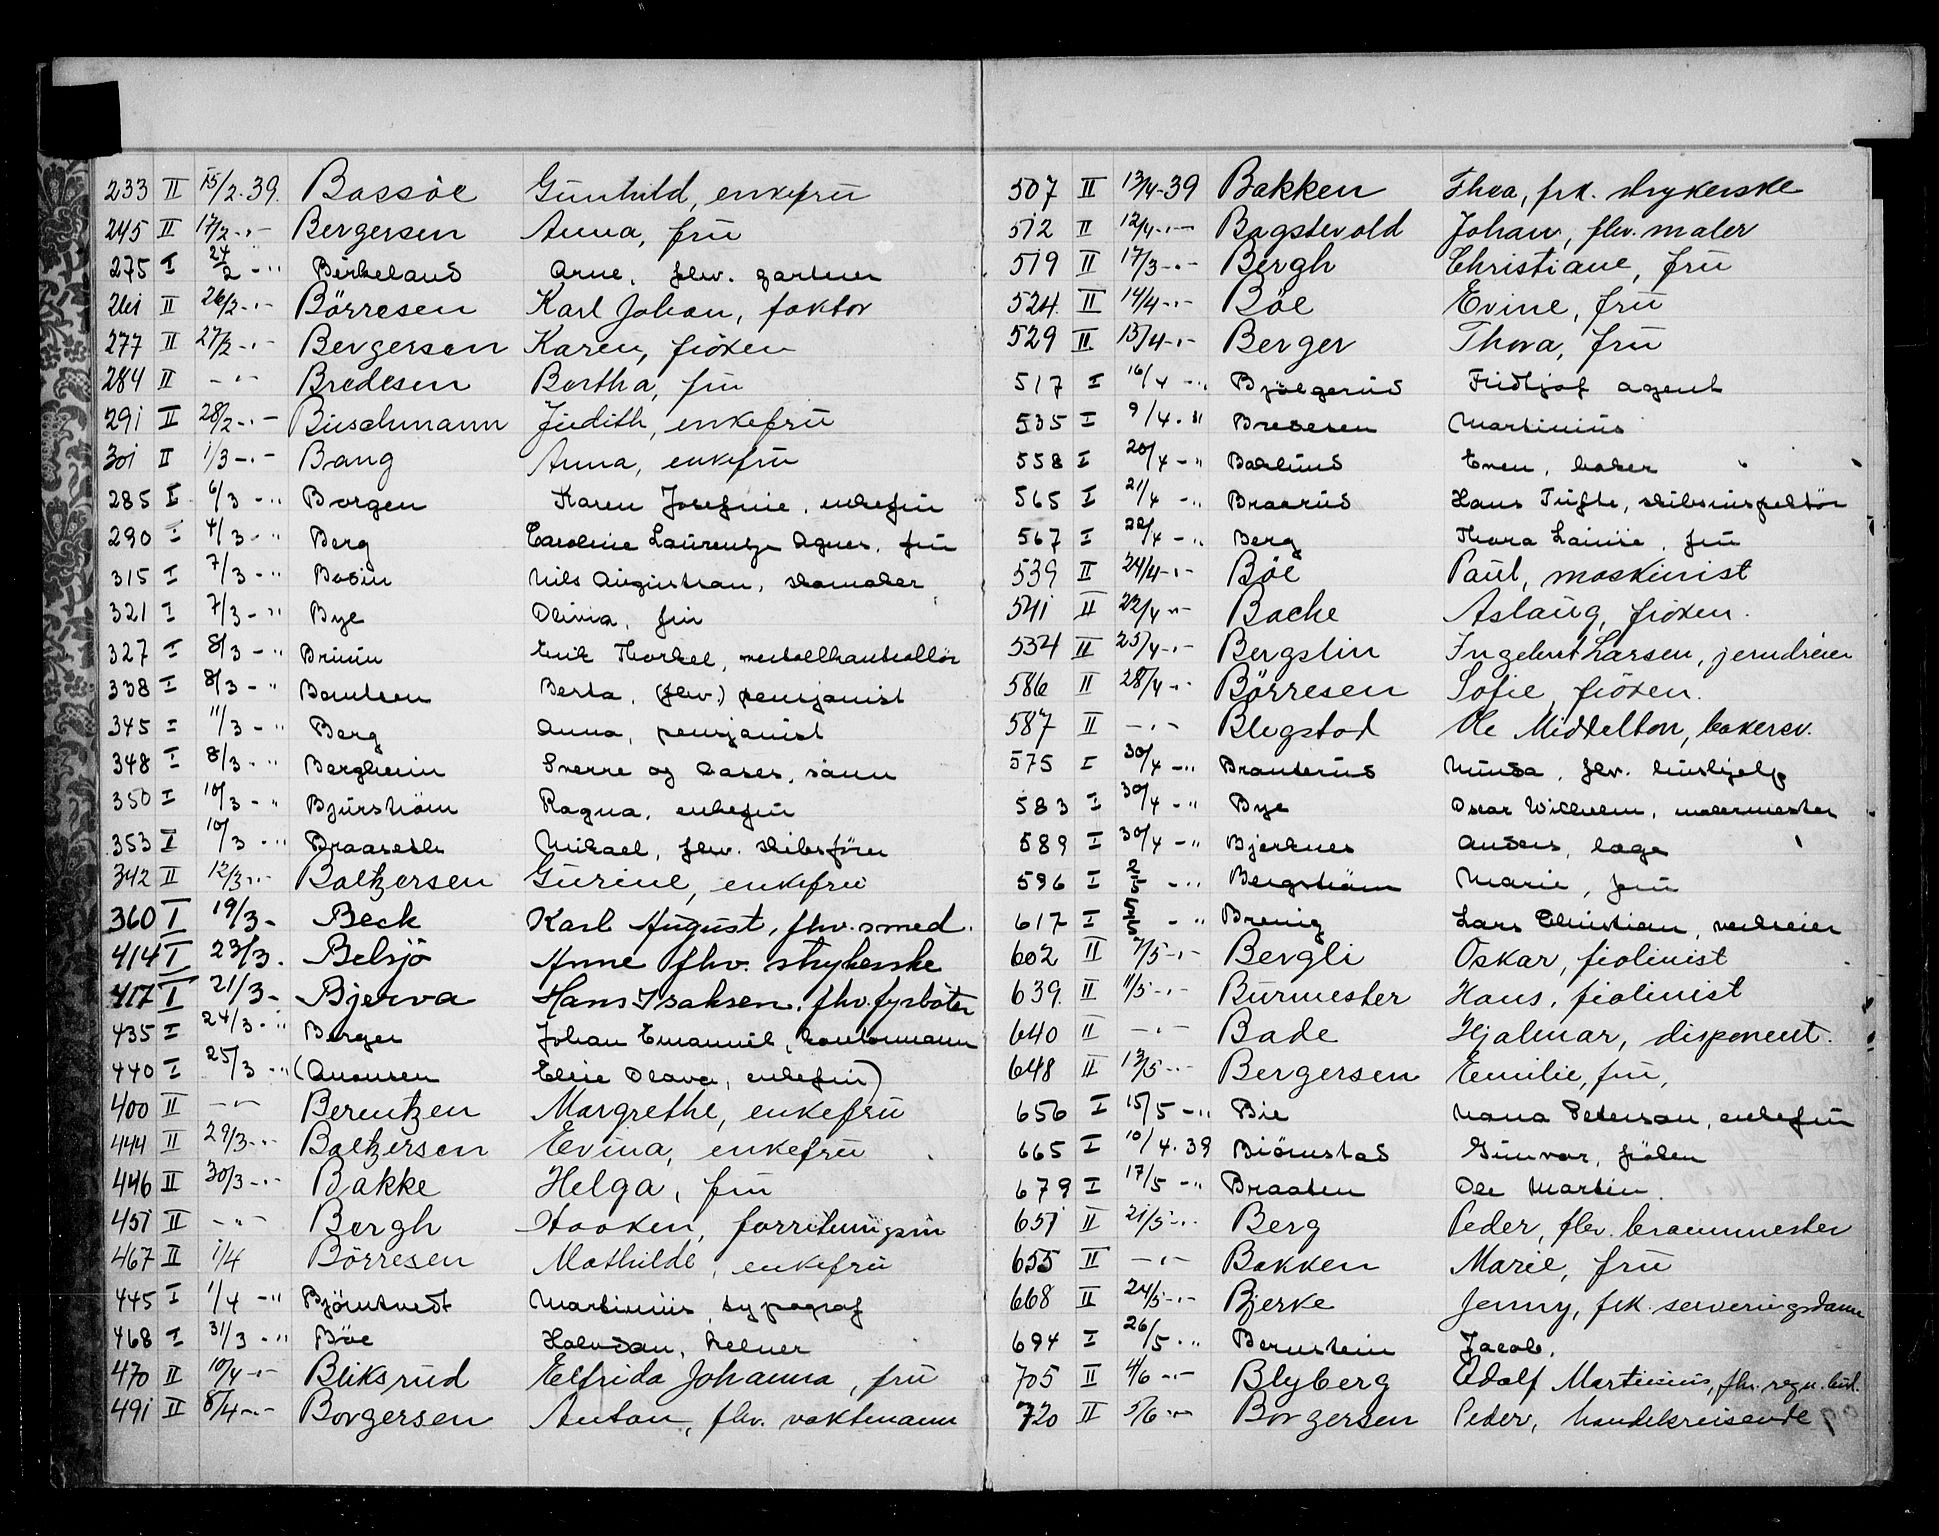 233 II 15/2. 39. Bassöe Gunhild, enkefru
245 II 17/2 -"- Bergersen Anna, fru
275 I 24/2 -" Birkeland Arne, fhv. gartner
261 II 26/2 -"- Börresen Karl Johan, faktor
277 II 27/2 -"- Bergersen Karen, fröken
284 II -"- Bredesen Bertha, fru
291 II 28/2 -"- Buschmann Judith, enkefru
301 II 1/3 -"- Bang Anna, enkefru
285 I 6/3 -" Borgen Karen Josefine, enkefru
290 I 4/3 -" Berg Caroline Laurentze Agnes, fru
315 I 7/3 -" Bodin Nils Augustran, skomaker
321 I 7/3 -" Bye Olivia, fru
327 I 8/3 -" Brunin Erik Thorkel, metallkontrollör
338 I 8/3 -" Berntsen Berta, (fhv.) pensjonist
345 I 11/3 -" Berg Anna, pensjonist
348 I 8/3 -" Bergheim Sverre og Aases, sönn
350 I 10/3 -" Bjurström Ragna, enkefru
353 I 10/3 -" Braaseth Mikael, fhv. skibsförer
342 II 12/3 -"- Baltzersen Gurine, enkefru
360 I 19/3 - Beck Karl August, fhv. smed.
414 I 23/3. Belsjö Anne fhv. strykerske
417 I 21/3 - Bjerva Hans Isaksen. fhv. fyrböter
435 I 24/3 -" Berger Johan Emanuel, kontormann
440 I 25/3 -" (Anonsen Elise Olava, enkefru)
400 II -"- Berentzen Margrethe, enkefru
444 II 29/3 -"- Baltzersen Evina, enkefru
446 II 30/3 -"- Bakke Helga, fru
451 II -"- Bergh Haaken, forretningsm
467 II 1/4 Börresen Mathilde, enkefru
445 I 1/4 -" Björntvedt Martinius, typograf
468 I 31/3 -" Böe Halvdan, kelner
470 II 10/4 -"- Bliksrud Elfrida Johanna, fru
491 II 8/4 -"- Borgersen Anton, fhv. vaktmann
507 II 13/4 -39 Bakken Thea, frk. strykerske
512 II 12/4 -"- Bogstevold Johan, fhv. maler
519 II 17/3 -"- Bergh Christiane, fru
524. II 14/4 -"- Böe Evine, fru
529 II 15/4 -"- Berger Thora, fru
517 I 16/4 -" Bjölgerud Fridtjof agent
535 I 9/4 -" Bredesen Martinius
558 I 20/4 -" Baklund Even, baker
565 I 21/4 -" Braarud Hans Tufte, skibsinspektör
567 I 22/4 -" Berg Thora Louise, fru
539 II 24/4 -"- Böe Paul, maskinist
541 II 22/4 -"- Bache Aslaug, fröken.
534 II 25/4 -"- Bergslin Ingebret Larsen, jerndreier
586 II 28/4 -"- Börresen Sofie, fröken.
587 II -"- Blegstad Ole Middelton, bakersv.
575 I 30/4 -" Branterud Hulda, fhv. hushjelp
583 I 30/4 -" Bye Oscar Wilhelm, malermester
589 I 30/4 -" Bjerknes Anders, læge
596 I 2/5 -" Bergström Marie, fru
617 I -" Brenig Lars Christian, verkeier
602 II 7/5 -"- Bergli Oskar, fiolinist
639. II 11/5 -"- Burmester Hans, fiolinist
640 II -"- Bade Hjalmar, disponent.
648 II 13/5 -"- Bergersen Emilie, fru,
656 I 15/5 -" Bie Nana Peterson, enkefru
665 I 10/4. 39 Biörnstad Gunvor, fröken
679 I 17/5 -" Braaten Ole Martin.
651 II 21/5 -"- Berg Peder, fhv. brannmester
655 II -"- Bakken Marie, fru
668 II 24/5 -"- Bjerke Jenny, frk. serveringsdame
694 I 26/5 -" Bernstein Jacob.
705 II 4/6 -"- Blyberg Adolf Martinius, fhv. regn. bud.
720 II 5/6 -"- Borgersen Peder, handelsreisende